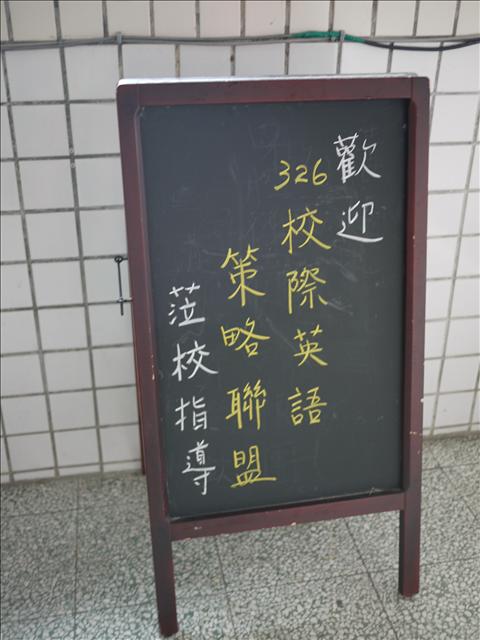 歡迎
326校際英語
策略聯盟
蒞校指導